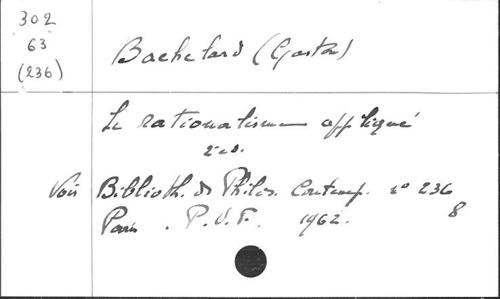 302
63
(236)
Bachelard (Gaston)
Le rationalisme appliqué
2 ed.
Voir Biblioth. de Philos. Contemp. n° 236
Paris. P.U.F. 1962. 8